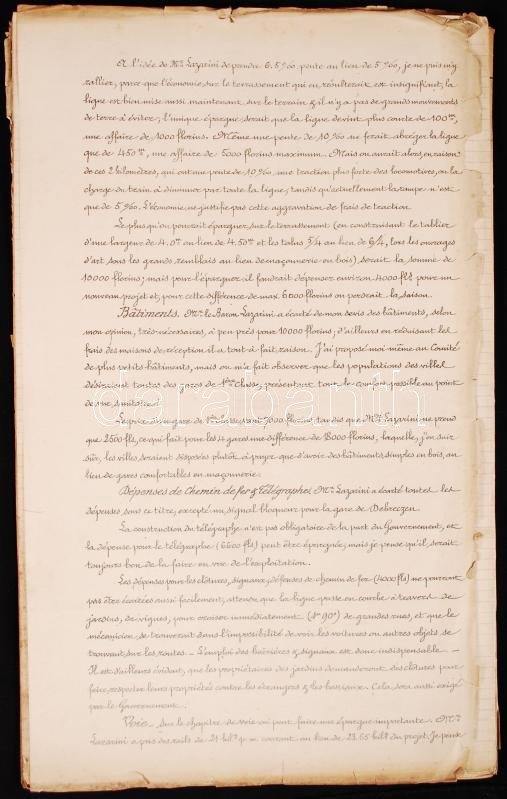 A l'idée de Mr. Lazarini de prendre 6.5‰ pente au lieu de 5‰, je ne puis m'y
rallier, parce que l'économie sur le terrassement qui en résulterait est insignifiant, la
ligne est bien mise aussi maintenant sur le terrain & il n'y a pas de grands mouvements
de terre à éviter; l'unique épargne serait que la ligne devint plus courte de 100m,
une affaire de 1000 florins. Même une pente de 10‰ ne ferait abréger la ligne
que de 450m, une affaire de 5000 florins maximum. Mais on aurait alors, en raison
de ces 2 kilomètres, qui ont une pente de 10‰, une traction plus forte des locomotives, ou la
charge du train à diminuer par toute la ligne, tandis qu'actuellement la rampe n'est
que de 5‰. L'économie ne justifie pas cette aggravation de frais de traction.
Le plus qu'on pourrait épargner sur le terrassement (en construisant le tablier
d'une largeur de 4.0m au lieu de 4.50m et les talus 5/4 au lieu de 6/4, tous les ouvrages
d'art sous les grands remblais au lieu de maçonnerie en bois), serait la somme de
10000 florins; mais pour l'épargner il faudrait dépenser environ 4000 fls pour un
nouveau projet et pour cette différence de max. 6000 florins on perdrait la saison.
Bâtiments. Mr. le Baron Lazarini a écarté de mon devis des bâtiments, selon
mon opinion, très-nécessaires, à peu près pour 10000 florins; d'ailleurs en réduisant les
frais des maisons de réception il a tout-à-fait raison. J'ai proposé moi-même au Comité
de plus petits bâtiments, mais on m'a fait observer que les populations des villes
désiraient toutes des gares de 1ère classe, présentant tout le confort possible au point
de vue sanitaire.
Le prix d'une gare de 1ère classe étant 7000 florins, tandis que Mr. Lazarini ne prend
que 2500 fls, ce qui fait pour les 4 gares une différence de 18000 florins, laquelle, j'en suis
sûr, les villes seraient disposées plutôt à payer que d'avoir des bâtiments simples en bois, au
lieu de gares confortables en maçonnerie.
Dépenses de Chemin de fer & Télégraphes. Mr. Lazarini a écarté toutes les
dépenses sous ce titre, excepté un signal bloqueur pour la gare de Debreczen.
La construction du télégraphe n'est pas obligatoire de la part du Gouvernement, et
la dépense pour le télégraphe (6600 fls) peut être épargnée, mais je pense qu'il serait
toujours bon de la faire en vue de l'exploitation.
Les dépenses pour les clôtures, signaux, défenses de chemin de fer (4000 fls) ne pourront
pas être écartées aussi facilement, attendu que la ligne passe en courbe à travers de
jardins, de vignes, pour croiser immédiatement de grandes rues, et que le
mécanicien se trouverait dans l'impossibilité de voir les voitures ou autres objets se
trouvant sur les routes. — L'emploi des barrières & signaux est donc indispensable. —
Il est d'ailleurs évident, que les propriétaires des jardins demanderont des clôtures pour
faire respecter leurs propriétés contre les étrangers & les bestiaux. Cela sera aussi exigé
par le Gouvernement.
Voie. Sur le chapitre de voie on peut faire une épargne importante. Mr.
Lazarini a pris des rails de 21 kils p. m. courant au lieu de 23.65 kils du projet. Je peux
darabanth